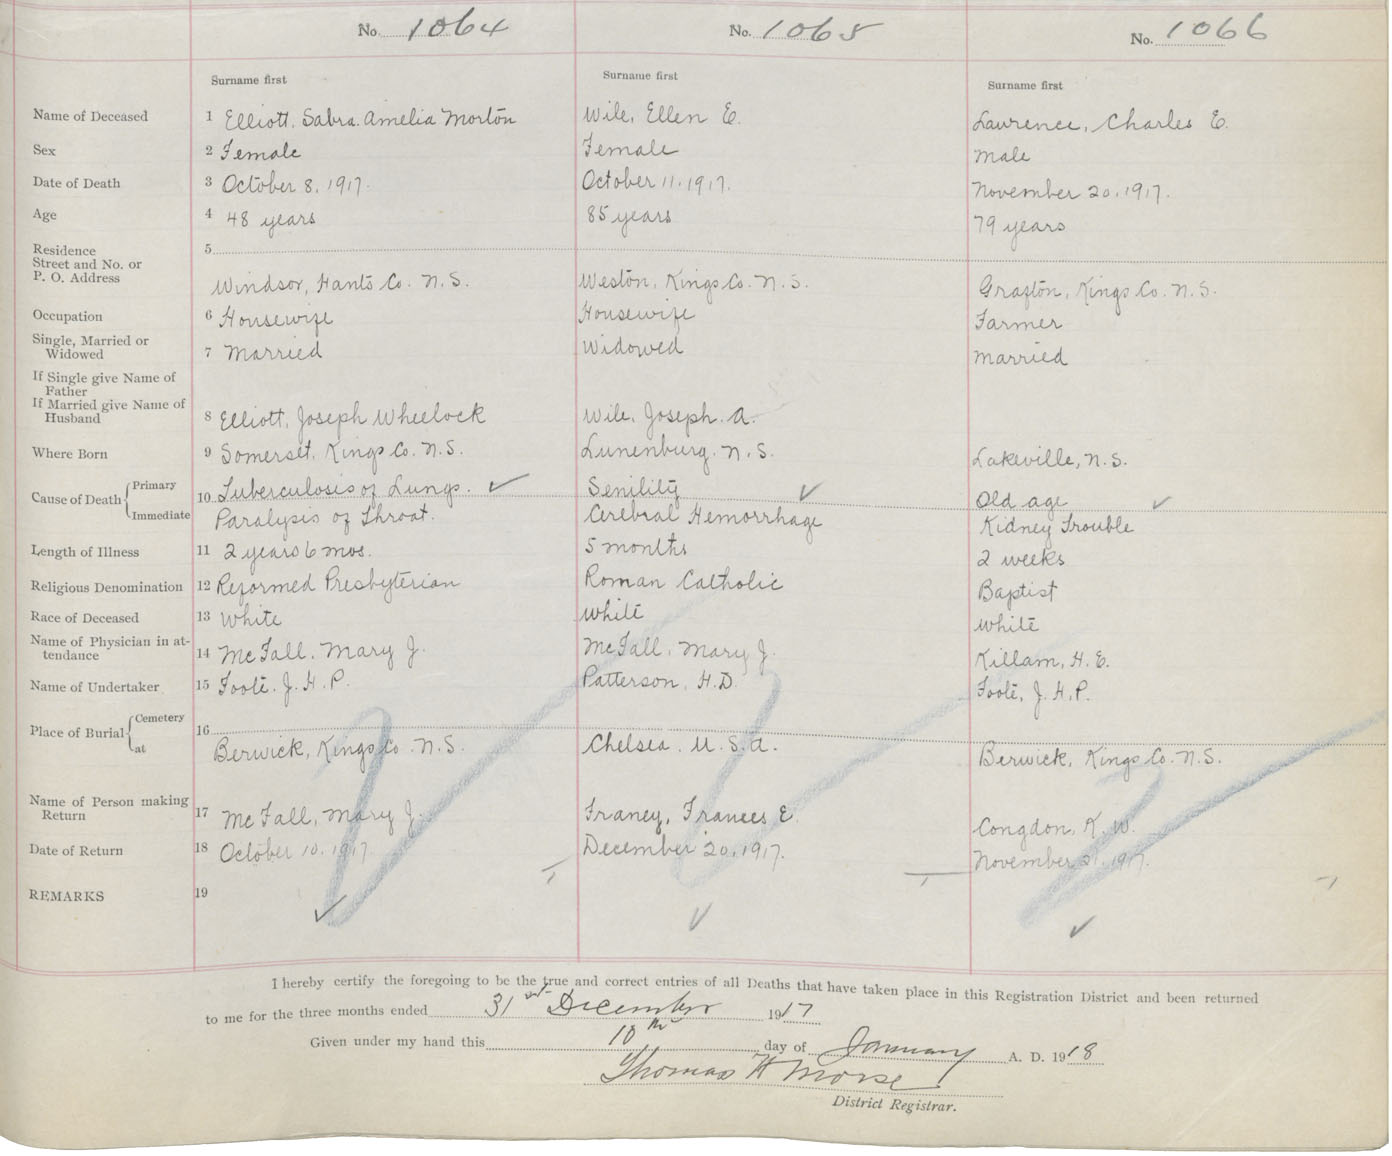 No. 1064 No. 1065 No. 1066
Surname first Surname first Surname first
Name of Deceased 1 Elliott, Sabra Amelia Morton Wile, Ellen E. Lawrence, Charles E.
Sex 2 Female Female Male
Date of Death 3 October 8, 1917. October 11, 1917. November 20, 1917.
Age 4 48 years 85 years 79 years
Residence 5
Street and No. or
P. O. Address Windsor, Hants Co. N.S. Weston, Kings Co. N.S. Grafton, Kings Co. N.S.
Occupation 6 Housewife Housewife Farmer
Single, Married or
Widowed 7 Married Widowed Married
If Single give Name of
Father
If Married give Name of
Husband 8 Elliott, Joseph Wheelock Wile, Joseph A.
Where Born 9 Somerset, Kings Co. N.S. Lunenburg, N.S. Lakeville, N.S.
Cause of Death Primary 10 Tuberculosis of Lungs. Senility Old age
Immediate Paralysis of Throat. Cerebral Hemorrhage Kidney Trouble
Length of Illness 11 2 years 6 mos. 5 months 2 weeks
Religious Denomination 12 Reformed Presbyterian Roman Catholic Baptist
Race of Deceased 13 White White White
Name of Physician in at-
tendance 14 McFall, Mary J. McFall, Mary J. Killam, H. E.
Name of Undertaker 15 Foote, J. H. P. Patterson, H.D. Foote, J. H. P.
Place of Burial Cemetery 16
at Berwick, Kings Co. N.S. Chelsea, U.S.A. Berwick, Kings Co. N.S.
Name of Person making
Return 17 McFall, Mary J. Franey, Frances E. Congdon, K. W.
Date of Return 18 October 10, 1917. December 20, 1917. November 1917.
REMARKS 19
I hereby certify the foregoing to be the true and correct entries of all Deaths that have taken place in this Registration District and been returned
to me for the three months ended 31st December 1917
Given under my hand this 10th day of January A. D. 1918
Thomas H Morse
District Registrar.